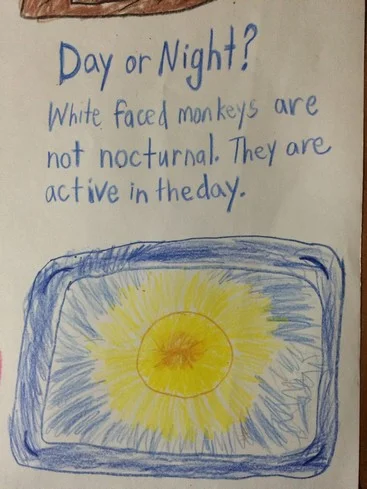 Day or Night?
White faced monkeys are
not nocturnal. They are
active in the day.